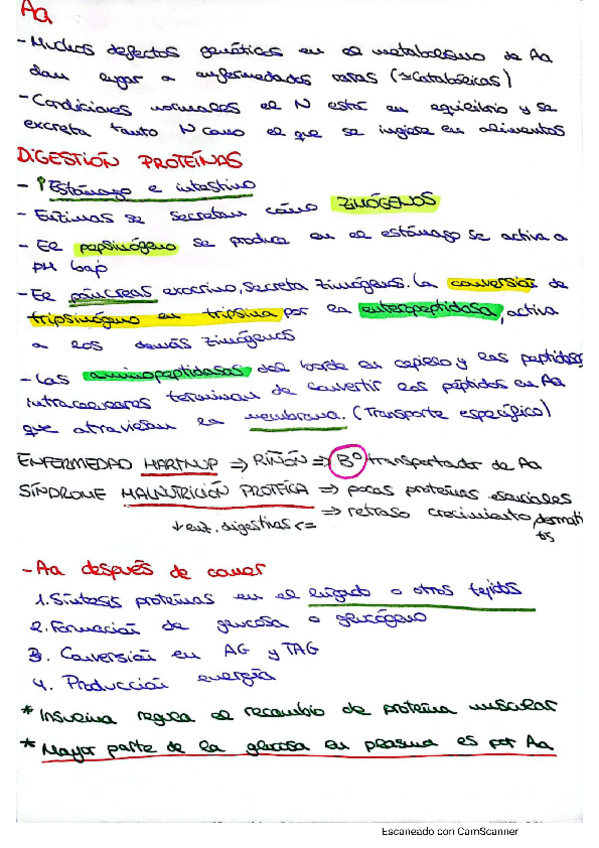 Aa
- Muchos defectos genéticos en el metabolismo de Aa
dan lugar a enfermedades raras (≈Catabólicas)
- Condiciones normales el N está en equilibrio y se
excreta tanto N como el que se ingiere en alimentos
DIGESTIÓN PROTEÍNAS
- Estómago e intestino
- Enzimas se secretan cómo ZIMÓGENOS
- El pepsinógeno se produce en el estómago se activa a
pH bajo
- El páncreas exocrino, secreta zimógenos. La conversión de
tripsinógeno en tripsina por la enteropeptidasa, activa
a los demás zimógenos
- Las aminopeptidasas del borde en cepillo y las peptidasas
intracelulares terminan de convertir los péptidos en Aa
que atraviesan la membrana. (Transporte específico)
ENFERMEDAD HARTNUP ⇒ RIÑÓN ⇒ B⁰ transportador de Aa
SÍNDROME MALNUTRICIÓN PROTEÍCA ⇒ pocas proteínas esenciales
⇒ retraso crecimiento, dermatitis
↓ enz. digestivas <=
- Aa después de comer
1. Síntesis proteínas en el hígado o otros tejidos
2. Formación de glucosa o glucógeno
3. Conversión en AG y TAG
4. Producción energía
* Insulina regula el recambio de proteína muscular
* Mayor parte de la glucosa en plasma es por Aa
Escaneado con CamScanner